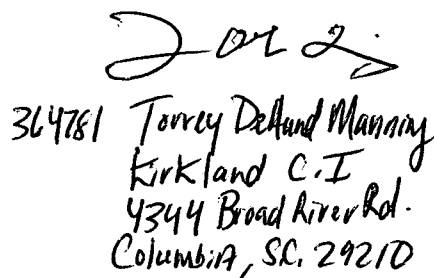 2 of 2
364781 Torrey DeAund Manning
Kirkland C.I
4344 Broad River Rd.
Columbia, SC. 29210